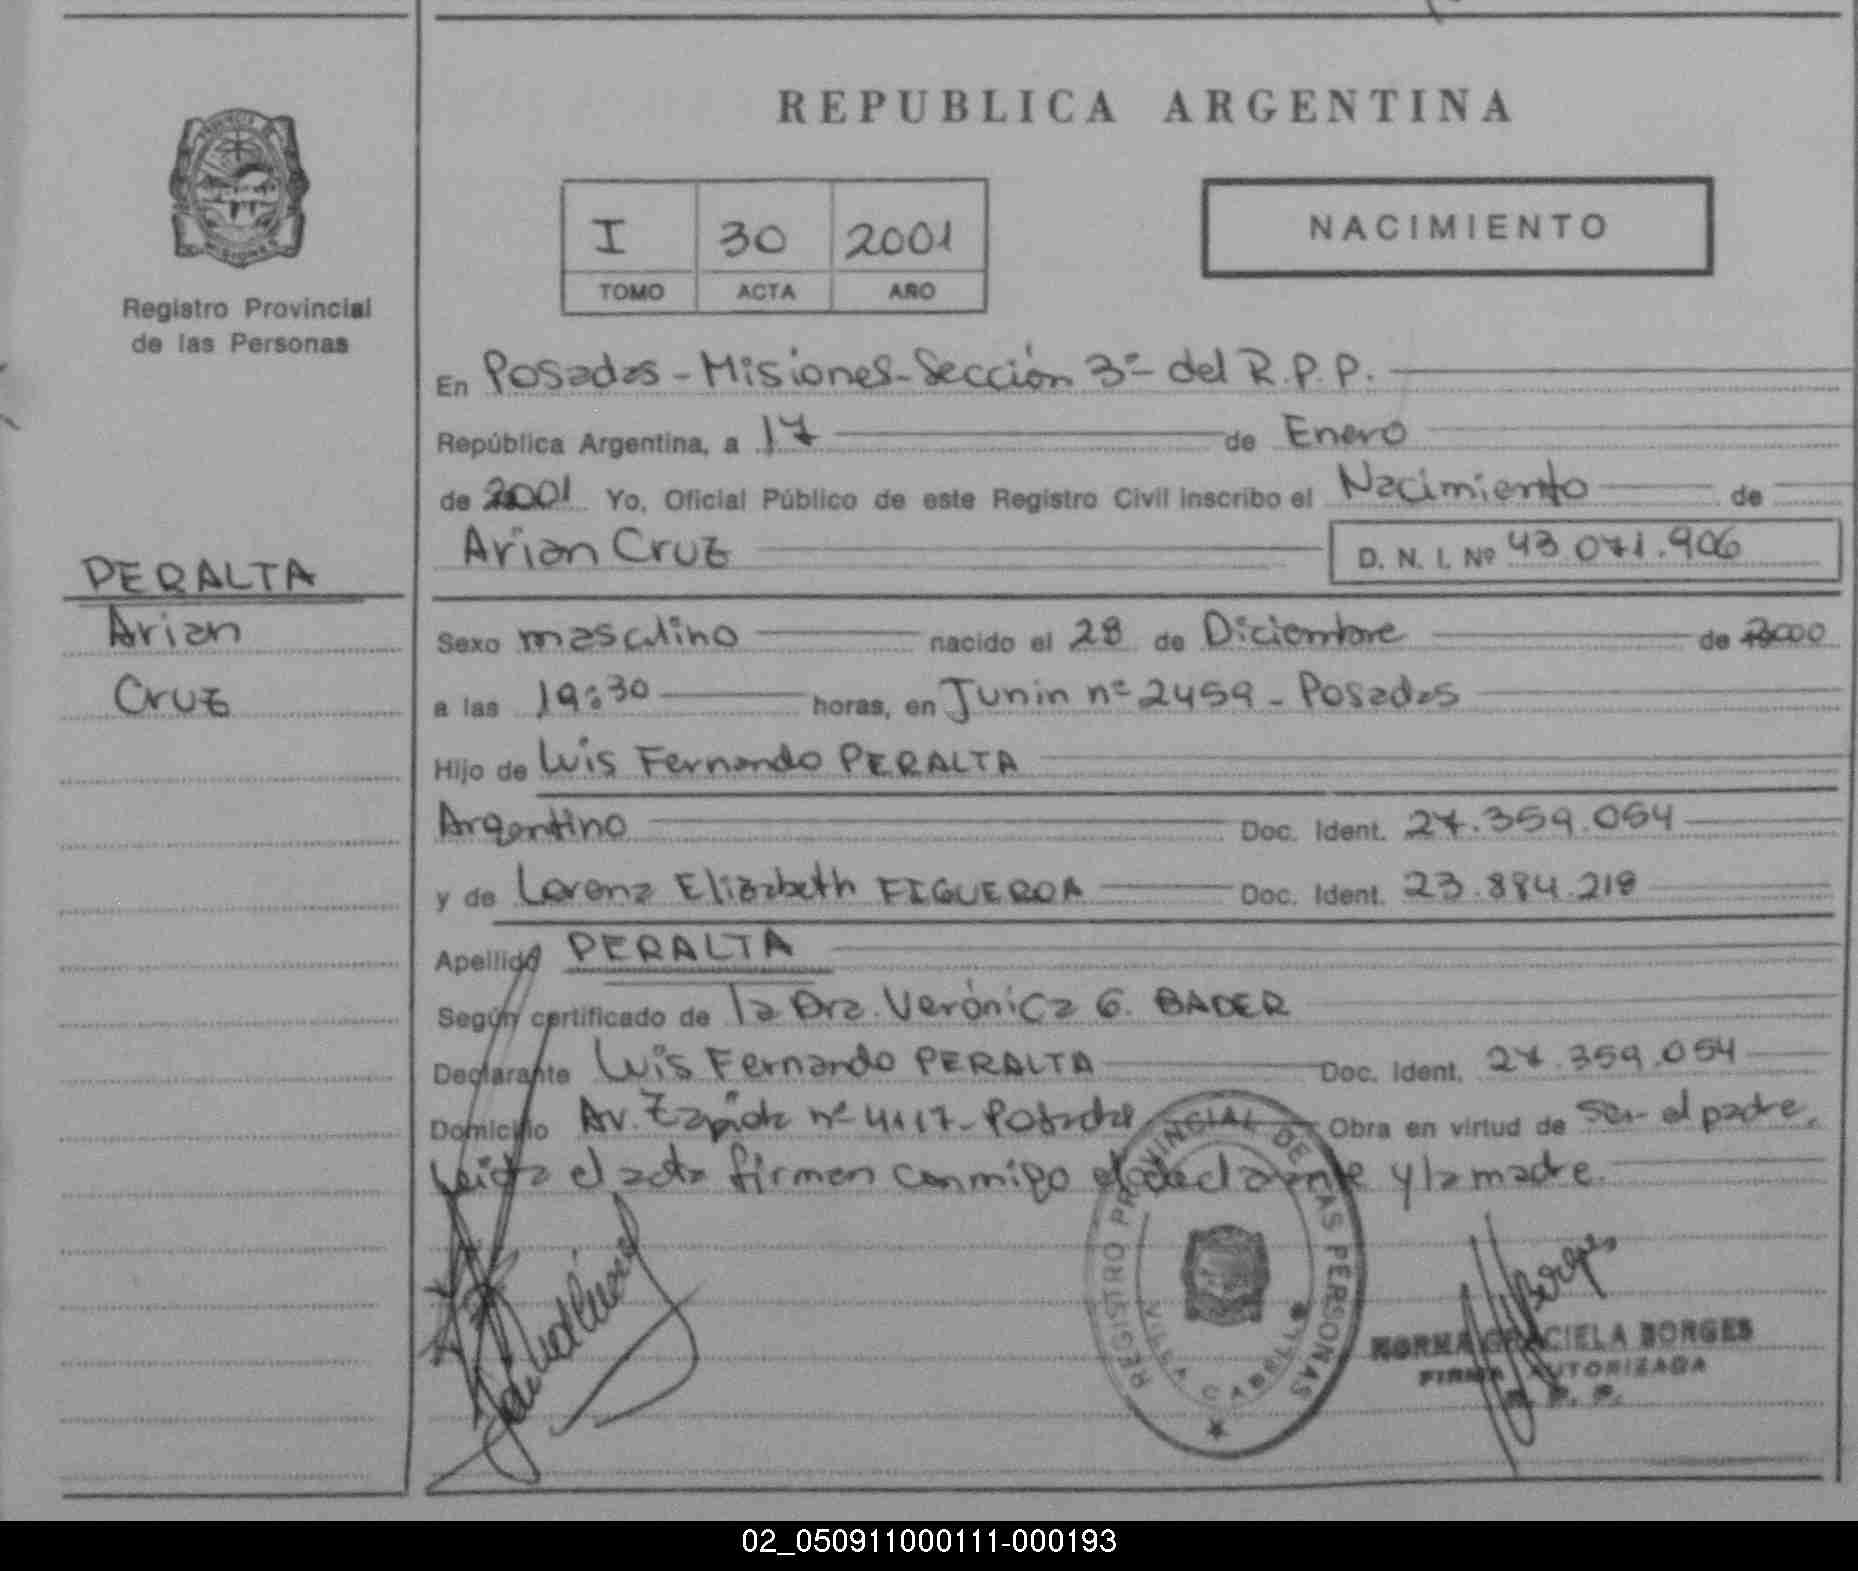 REPUBLICA ARGENTINA
PROVINCIA DE MISIONES
Registro Provincial
de las Personas
I 30 2001
TOMO ACTA AÑO
NACIMIENTO
En Posadas - Misiones - Sección 3ª del R.P.P.
República Argentina, a 17 de Enero
de 2001 Yo, Oficial Público de este Registro Civil inscribo el Nacimiento de
Arian Cruz D. N. I. Nº 43.071.906
PERALTA
Arian
Cruz
Sexo masculino nacido el 28 de Diciembre de 2000
a las 19:30 horas, en Junin nº 2459 - Posadas
Hijo de Luis Fernando PERALTA
Argentino Doc. Ident. 27.359.054
y de Lorena Elizabeth FIGUEROA Doc. Ident. 23.884.218
Apellido PERALTA
Según certificado de la Dra. Verónica G. BADER
Declarante Luis Fernando PERALTA Doc. Ident. 27.359.054
Domicilio Av. Zapiola nº 4117 - Posadas Obra en virtud de ser el padre.
Leida el acta firman conmigo el declarante y la madre.
REGISTRO PROVINCIAL DE LAS PERSONAS
VILLA CABELLO
NORMA GRACIELA BORGES
FIRMA AUTORIZADA
R. P. P.
02_050911000111-000193